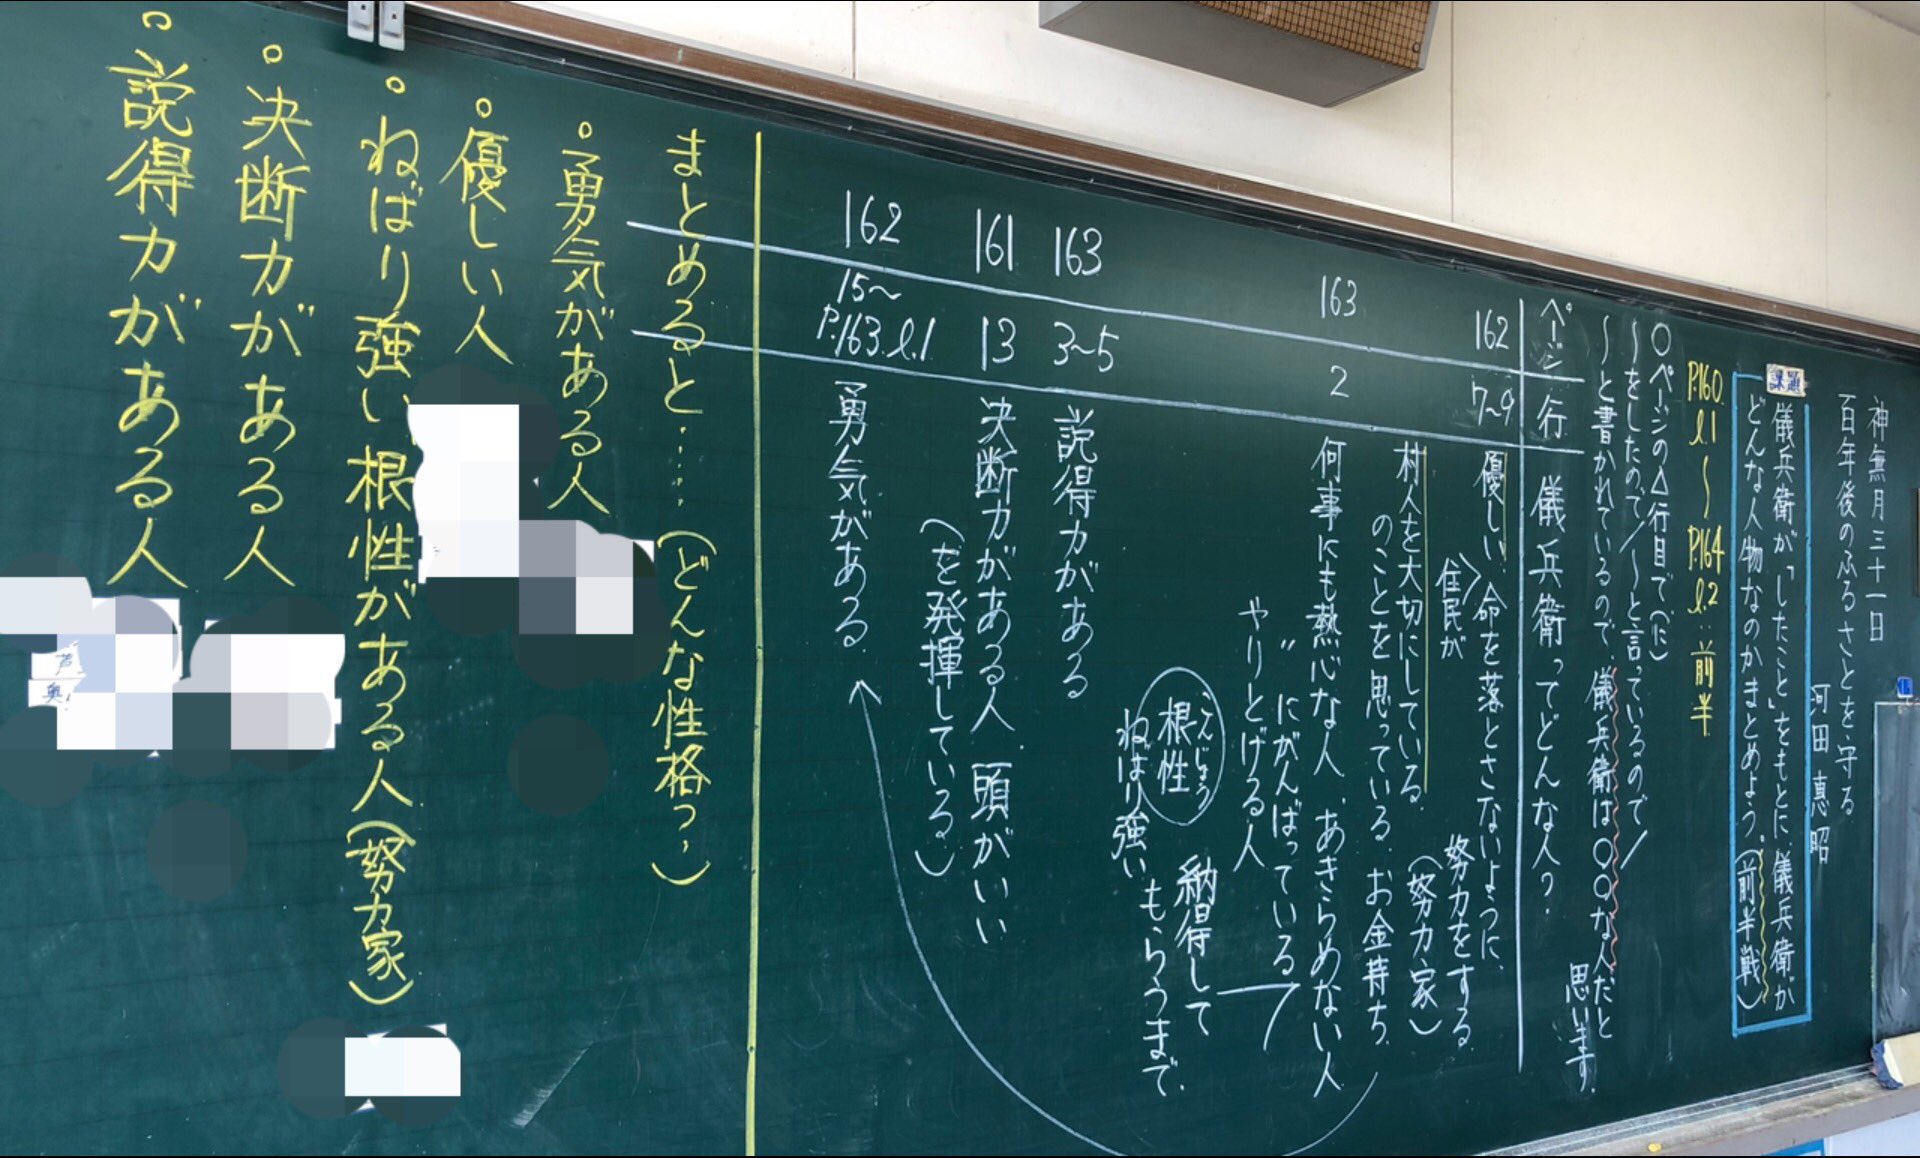 神無月三十一日
百年後のふるさとを守る
河田惠昭
課題
儀兵衛が「したこと」をもとに、儀兵衛が
どんな人物なのかまとめよう。(前半戦)
P.160 l.1〜P.164 l.2…前半
○ページの△行目で(に)
〜をしたので/〜と言っているので/
〜と書かれているので、儀兵衛は○○な人だと
思います。
ページ 行 儀兵衛ってどんな人?
162 7〜9 優しい 命を落とさないように、
住民が
努力をする
(努力家)
村人を大切にしている。
のことを思っている。お金持ち
163 2 何事にも熱心な人、あきらめない人
〃 にがんばっている
やりとげる人
こんじょう
根性
ねばり強い
納得して
もらうまで
163 3〜5 説得力がある
161 13 決断力がある人、頭がいい
(を発揮している)
162 15〜P.163.l.1 勇気がある
まとめると……(どんな性格?)
・勇気がある人
・優しい人
・ねばり強い根性がある人(努力家)
・決断力がある人
・説得力がある人